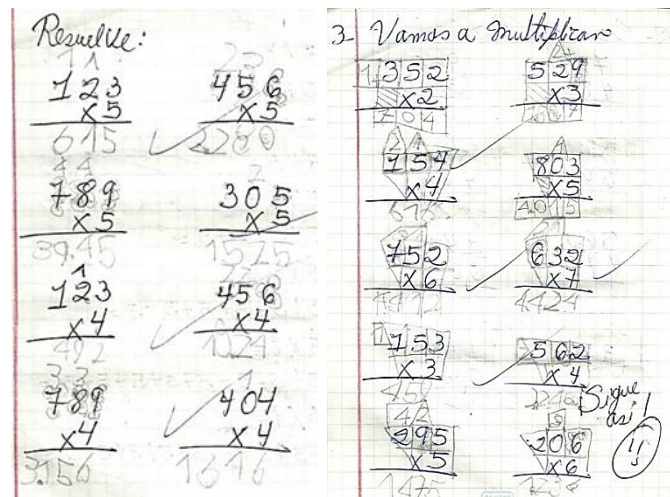 Resuelve:
123
x5
615
456
x5
2280
789
x5
39.45
305
x5
1525
123
x4
492
456
x4
789
x4
3.156
404
x4
1616
3- Vamos a multiplicar
352
x2
704
529
x3
154
x4
616
803
x5
4.015
752
x6
632
x7
4424
153
x3
459
562
x4
Sigue
así!
295
x5
1475
206
x6